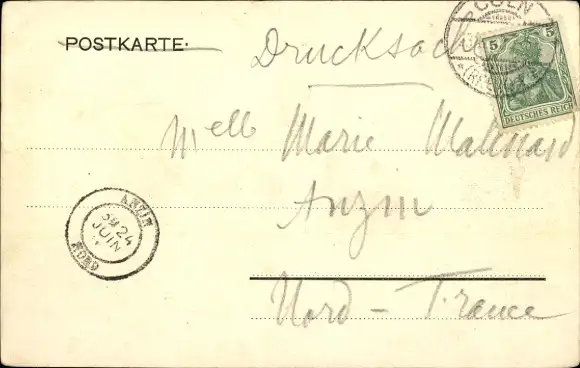 POSTKARTE. Drucksache
COELN
5 5
DEUTSCHES REICH
Melle Marie Malinard
Anzin
ANZIN
24
JUIN
NORD
Nord - France